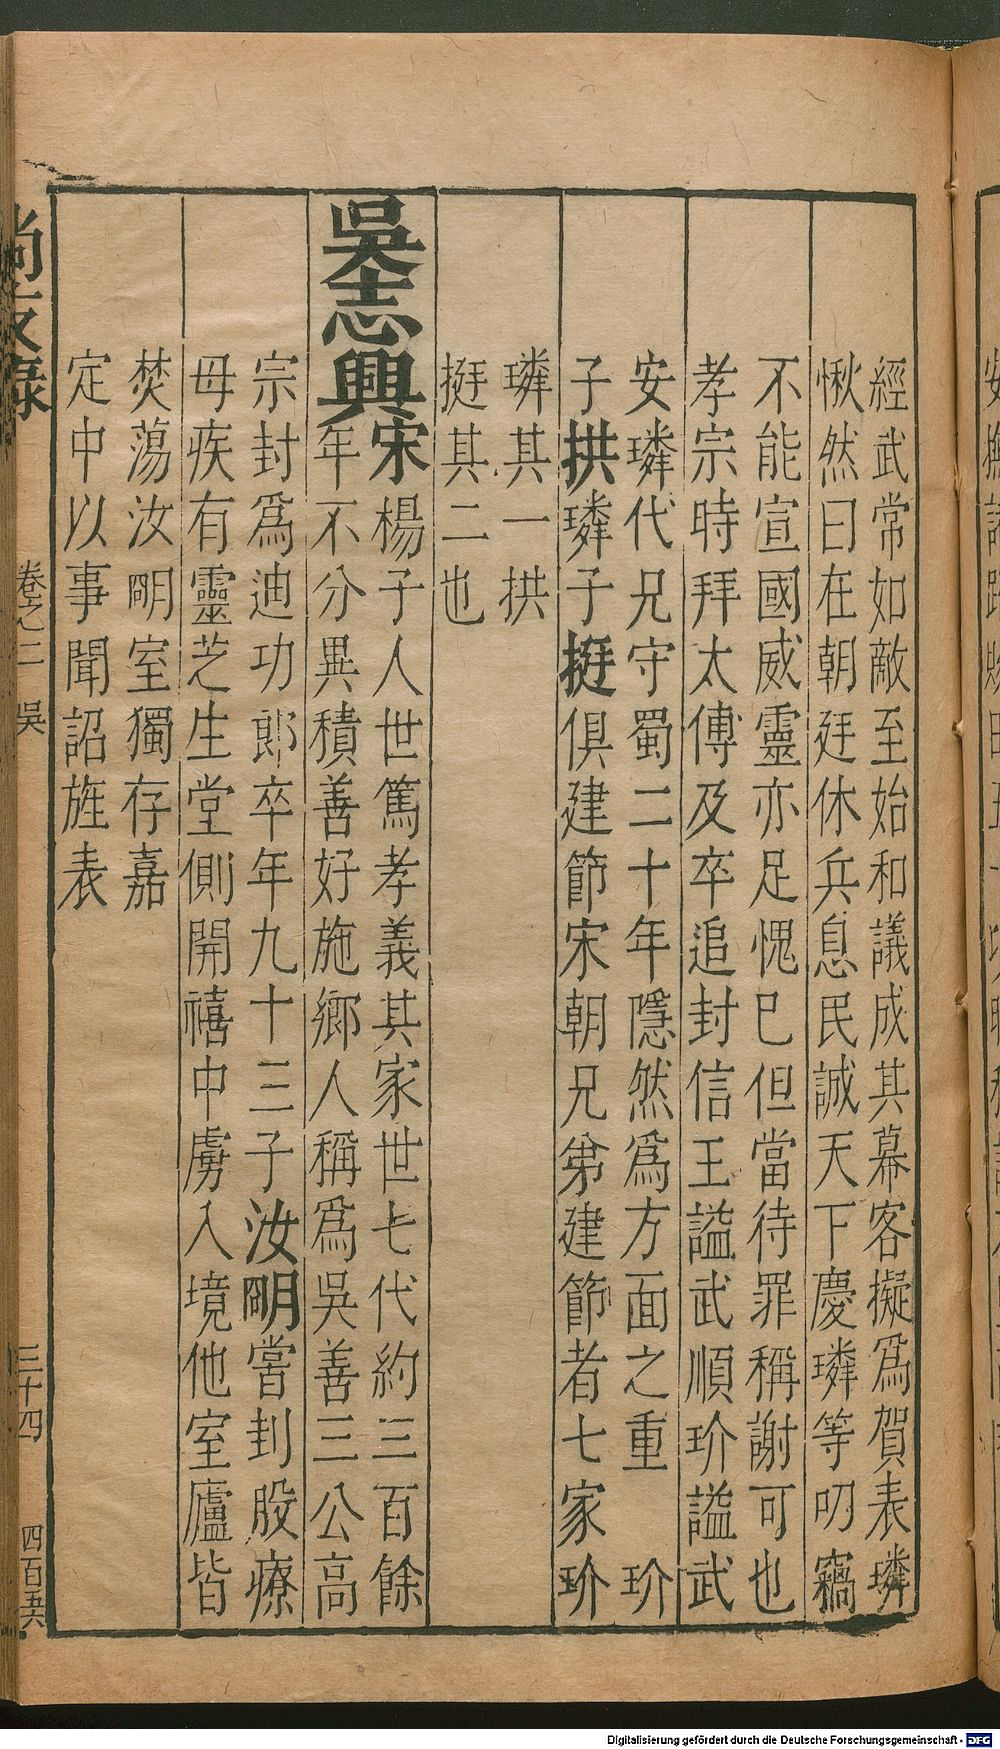 經武常如敵至始和議成其幕客擬爲賀表璘
愀然曰在朝廷休兵息民誠天下慶璘等叨竊
不能宣國威靈亦足愧巳但當待罪稱謝可也
孝宗時拜太傅及卒追封信王謚武順玠謚武
安璘代兄守蜀二十年隱然爲方面之重 玠
子拱璘子挺俱建節宋朝兄弟建節者七家玠
璘其一拱
挺其二也
吳志興宋楊子人世篤孝義其家世七代約三百餘
年不分異積善好施鄉人稱爲吳善三公高
宗封爲迪功郎卒年九十三子汝明嘗刲股療
母疾有靈芝生堂側開禧中虜入境他室廬皆
焚蕩汝明室獨存嘉
定中以事聞詔旌表
尚友錄 卷之二 吳 三十四 四百五六
Digitalisierung gefördert durch die Deutsche Forschungsgemeinschaft - DFG